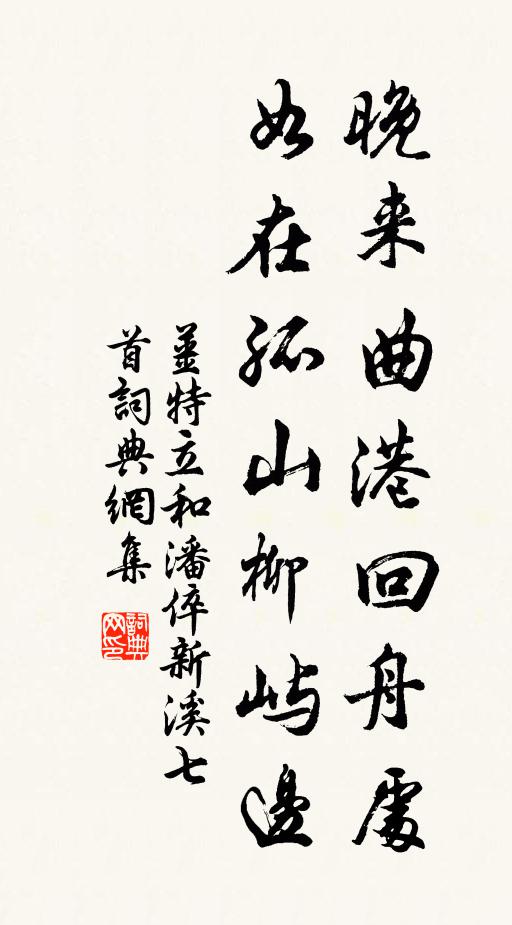 晚来曲港回舟處
如在孤山柳屿邊
姜特立和潘倅新溪七
首詞典網集
詞典网印